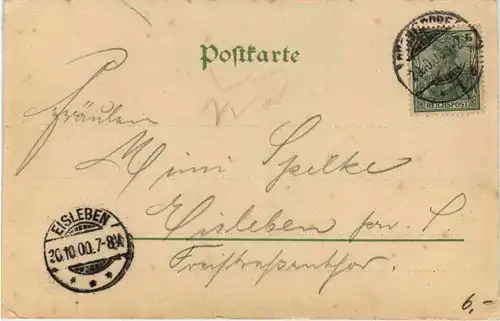 Postkarte
5
REICHSPOST
Fräulein
Mimi Spelke
Eisleben pr. S
Freistraßenthor.
EISLEBEN
20.10.00.7-8V.
6,-